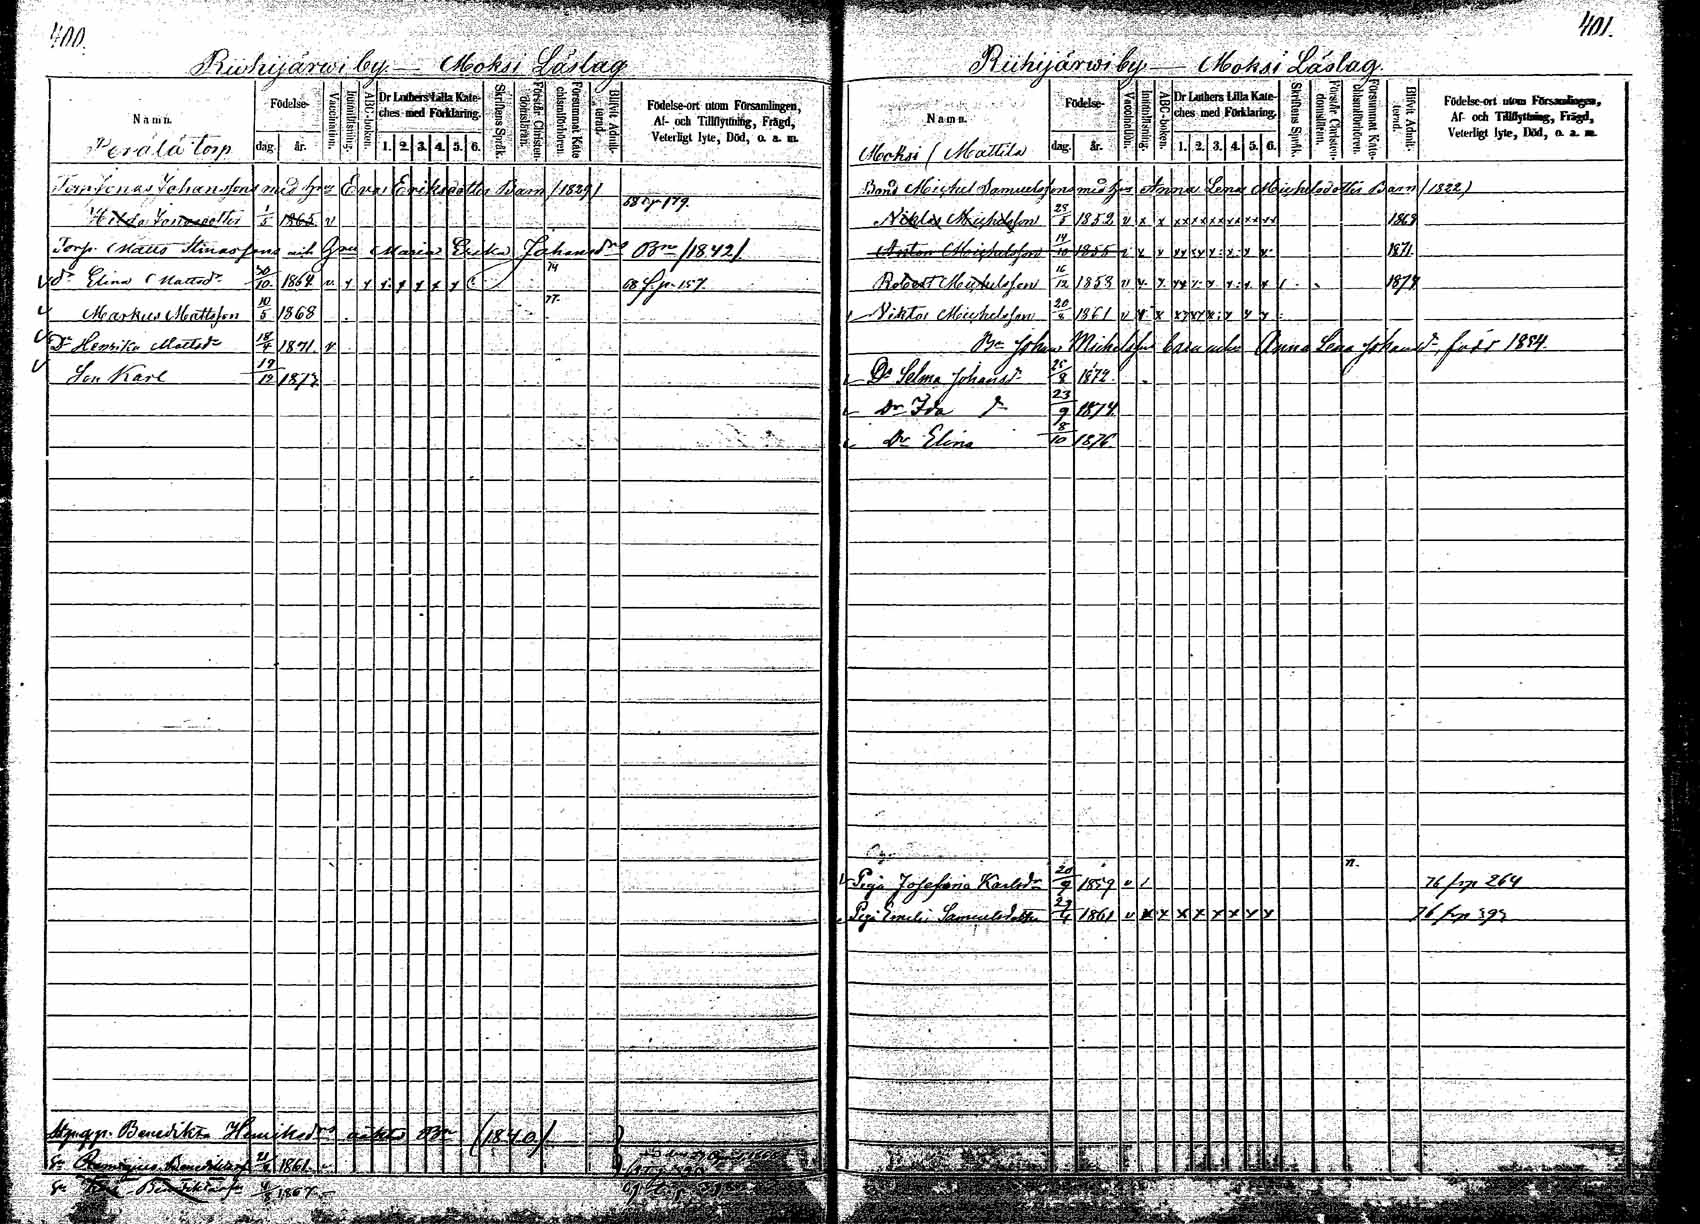 400.
Riihijärwi by — Moksi Läslag
Namn.
Födelse-
dag. år.
Vaccination.
Innanläsning.
ABC-boken.
Dr Luthers Lilla Kate-
ches med Förklaring.
1. 2. 3. 4. 5. 6.
Skriftens Språk.
Förstår Christen-
domsläran.
Försummat Kate-
chismiförhören.
Blifvit Admit-
terad.
Födelse-ort utom Församlingen,
Af- och Tillflyttning, Frägd,
Veterligt lyte, Död, o. a. m.
Perälä torp
Torp Jonas Johanssons med hu Evas Eriksdotter Barn /1829/
Hilda Jonaedotter 1/5 1865 v 68 fr p 179.
Torp. Matts Simassons och Greta Maria Erika Johansdrs Bn /1842/.
dr Elina Mattsdr 30/10 1864 v. x x x x x x x 74 68 fr p 157.
Markus Mattsson 10/5 1868 n.
Dr Henrika Mattsdr 18/4 1871. v
Son Karl 19/12 1873
Benedikta Henriksdrs oäkta Bn (1840)
Benediktasson 1861
1867
401.
Riihijärwi by — Moksi Läslag.
Namn.
Födelse-
dag. år.
Vaccination.
Innanläsning.
ABC-boken.
Dr Luthers Lilla Kate-
ches med Förklaring.
1. 2. 3. 4. 5. 6.
Skriftens Språk.
Förstår Christen-
domsläran.
Försummat Kate-
chismiförhören.
Blifvit Admit-
terad.
Födelse-ort utom Församlingen,
Af- och Tillflyttning, Frägd,
Veterligt lyte, Död, o. a. m.
Moksi / Mattila
Bond Michel Samuelssons med hu Anna Lena Michelsdotters Barn /1822/
Niklas Michelsson 28/5 1852 v x x xxxxxxxxxx 1868
Anton Michelsson 14/10 1855 v x x xx x x x x 1871.
Robert Michelsson 16/12 1858 v x x xx x x x x 1874
Viktor Michelsson 20/8 1861 v x x xxxx x x x
Bn Johan Michelssons barn Anna Lena Johansdr, född 1854.
Dr Selma Johansdr 25/8 1872.
Dr Ida dr 23/9 1874.
Dr Elina 8/10 1876
Piga Josefina Karlsdr 20/9 1859 v / n. 76 fr p 264
Piga Emeli Samuelsdotter 29/4 1861 v x x x x x x x x 76 fr p 393